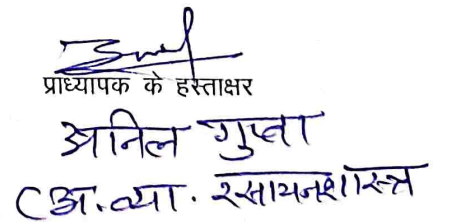 प्राध्यापक के हस्ताक्षर
अनिल गुप्ता
(अ.व्या. रसायनशास्त्र